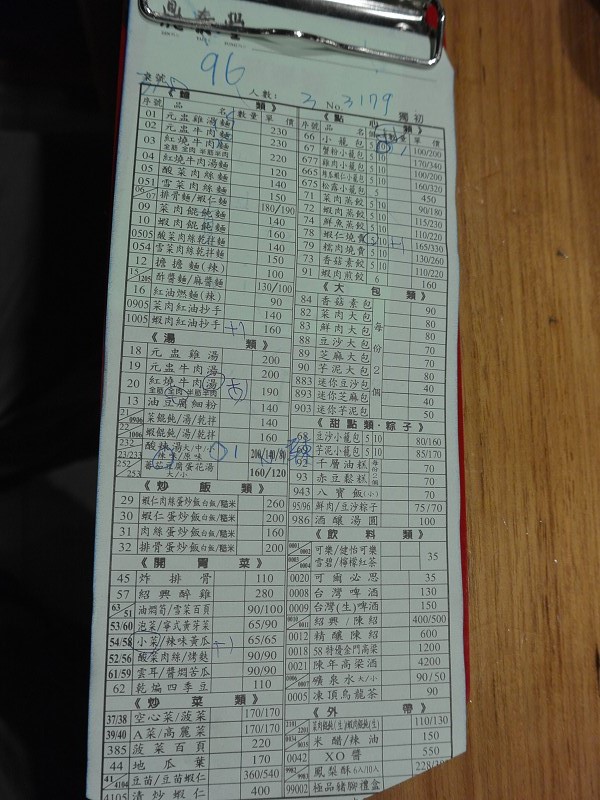 鼎泰豐
桌號 96 人數: 3 No 3179 獨初
《麵 類》
序號 品名 數量 單價
01 元盅雞湯麵 230
02 元盅牛肉麵 230
03 紅燒牛肉麵 220
全筋 全肉 半筋半肉
04 紅燒牛肉湯麵 120
05 酸菜肉絲麵 140
051 雪菜肉絲麵 140
06/07 排骨麵/蝦仁麵 150
09 菜肉餛飩麵 180/190
10 蝦肉餛飩麵 140
0505 酸菜肉絲乾拌麵 160
054 雪菜肉絲乾拌麵 140
12 擔擔麵(辣) 150
15/1205 酢醬麵/麻醬麵 100
16 紅油燃麵(辣) 130/100
0905 菜肉紅油抄手 90
1005 蝦肉紅油抄手 +1 140
160
《湯 類》
18 元盅雞湯 200
19 元盅牛肉湯 200
20 紅燒牛肉湯 190
全筋 全肉 半筋半肉
13 油豆腐細粉 140
21/0906 菜餛飩/湯/乾拌 140
22/1006 蝦餛飩/湯/乾拌 160
232 酸辣湯大/中/小
23/233 辣味/原味 1 200/140/80
252/253 番茄豆腐蛋花湯 大/小 160/120
《炒 飯 類》
29 蝦仁肉絲蛋炒飯白飯/糙米 260
30 蝦仁蛋炒飯白飯/糙米 200
31 肉絲蛋炒飯白飯/糙米 160
32 排骨蛋炒飯白飯/糙米 200
《開 胃 菜》
45 炸排骨 110
57 紹興醉雞 280
63/51 油燜筍/雪菜百頁 90/100
53/60 泡菜/寧式黃芽菜 65/90
54/58 小菜/辣味黃瓜 +1 65/65
52/56 酸菜肉絲/烤麩 90/90
61/59 雲耳/醬燜苦瓜 90/90
62 乾煸四季豆 110
《炒 菜 類》
37/38 空心菜/菠菜 170/170
39/40 A菜/高麗菜 170/170
385 菠菜百頁 220
44 地瓜葉 170
41/4104 豆苗/豆苗蝦仁 360/540
4105 清炒蝦仁 400
《點 心 類》
序號 品名 個 數量 單價
66 小籠包 5 10 1 100/200
67 蟹粉小籠包 5 10 170/340
677 雞肉小籠包 5 10 100/200
665 絲瓜蝦仁小籠包 5 10 160/320
675 松露小籠包 5 450
71 菜肉蒸餃 5 10 90/180
72 蝦肉蒸餃 5 10 115/230
74 鮮肉蒸餃 5 10 110/220
78 蝦仁燒賣 5 10 +1 165/330
79 糯肉燒賣 5 10 130/260
73 香菇素餃 5 10 110/220
91 蝦肉煎餃 6 160
《大 包 類》
84 香菇素包 90
82 菜肉大包 80
83 鮮肉大包 80
88 豆沙大包 70
89 芝麻大包 70
90 芋泥大包 80
883 迷你豆沙包 40
893 迷你芝麻包 40
903 迷你芋泥包 50
每份2個
《甜點類・粽子》
98 豆沙小籠包 5 10 80/160
芋泥小籠包 5 10 85/170
92 千層油糕 70
93 赤豆鬆糕 70
943 八寶飯(小) 70
95/96 鮮肉/豆沙粽子 75/70
986 酒釀湯圓 100
《飲 料 類》
0001/0002 可樂/健怡可樂 35
0003/0004 雪碧/檸檬紅茶
0020 可爾必思 35
0008 台灣啤酒 130
0009 台灣(生)啤酒 150
紹興/陳紹 400/500
0012 精釀陳紹 600
0018 58特優金門高梁 1200
0021 陳年高梁酒 4200
0006/0007 礦泉水大/小 90/50
0005 凍頂烏龍茶 90
《外 帶》
2101/2201 菜肉餛飩(生)/蝦肉餛飩(生) 110/130
0034/0035 米醋/辣油 150
0042 XO醬 550
9982/9983 鳳梨酥6入/10入
99002 極品豬腳禮盒